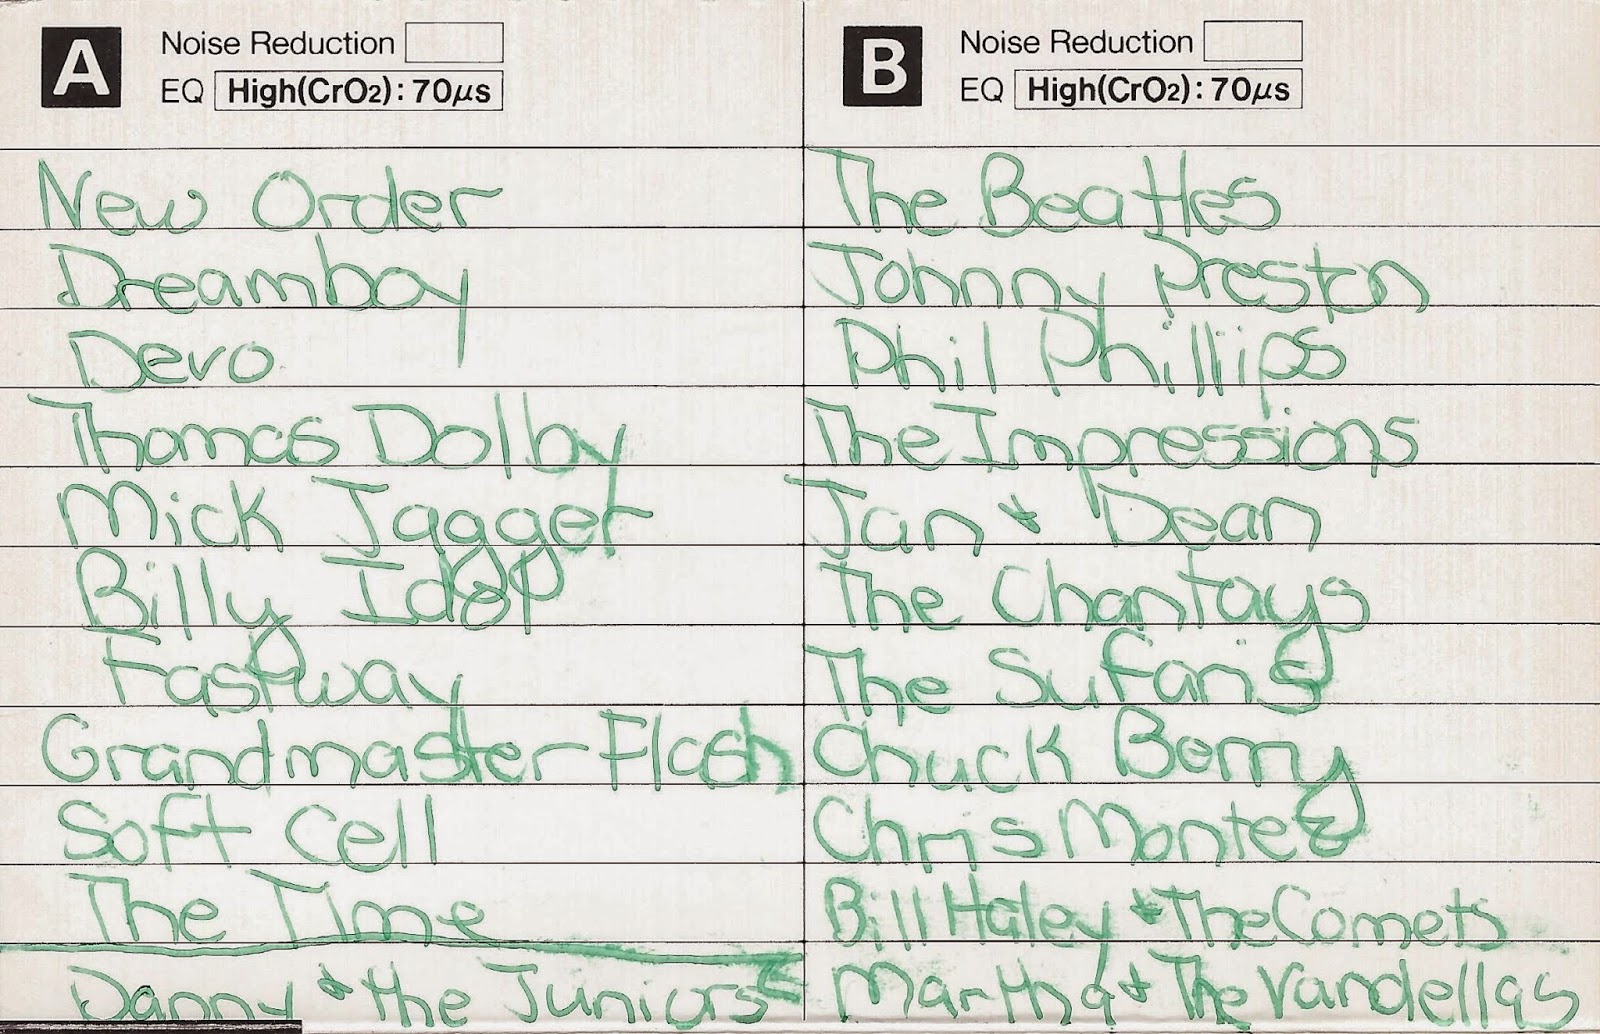 A Noise Reduction
EQ High(CrO2): 70µs
New Order
Dreamboy
Devo
Thomas Dolby
Mick Jagger
Billy Idol
Fastway
Grandmaster Flash
Soft Cell
The Time
Danny & the Juniors
B Noise Reduction
EQ High(CrO2): 70µs
The Beatles
Johnny Preston
Phil Phillips
The Impressions
Jan & Dean
The Chantays
The Sufaris
Chuck Berry
Chris Montez
Bill Haley & The Comets
Martha & The Vandellas